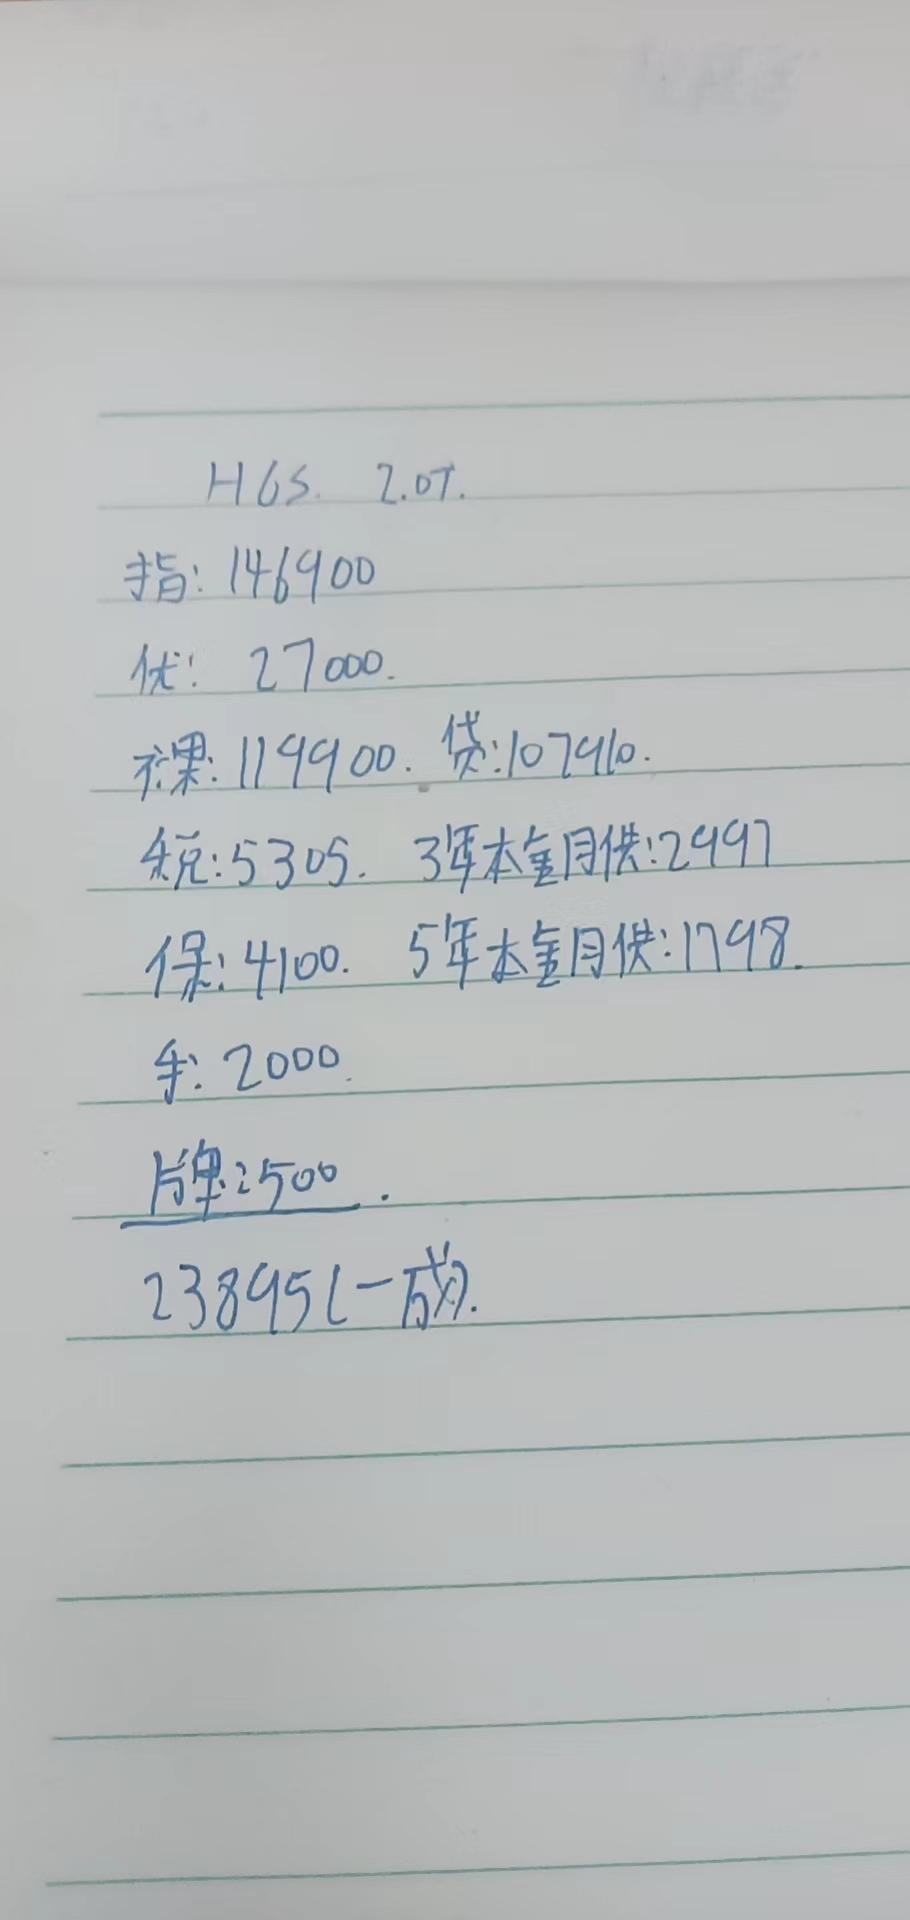 H6S. 2.0T.
指: 146900
优: 27000.
裸: 119900. 贷:107910.
税:5305. 3年本金月供:2997
保:4100. 5年本金月供:1798.
手: 2000.
牌:500.
23895(一成).